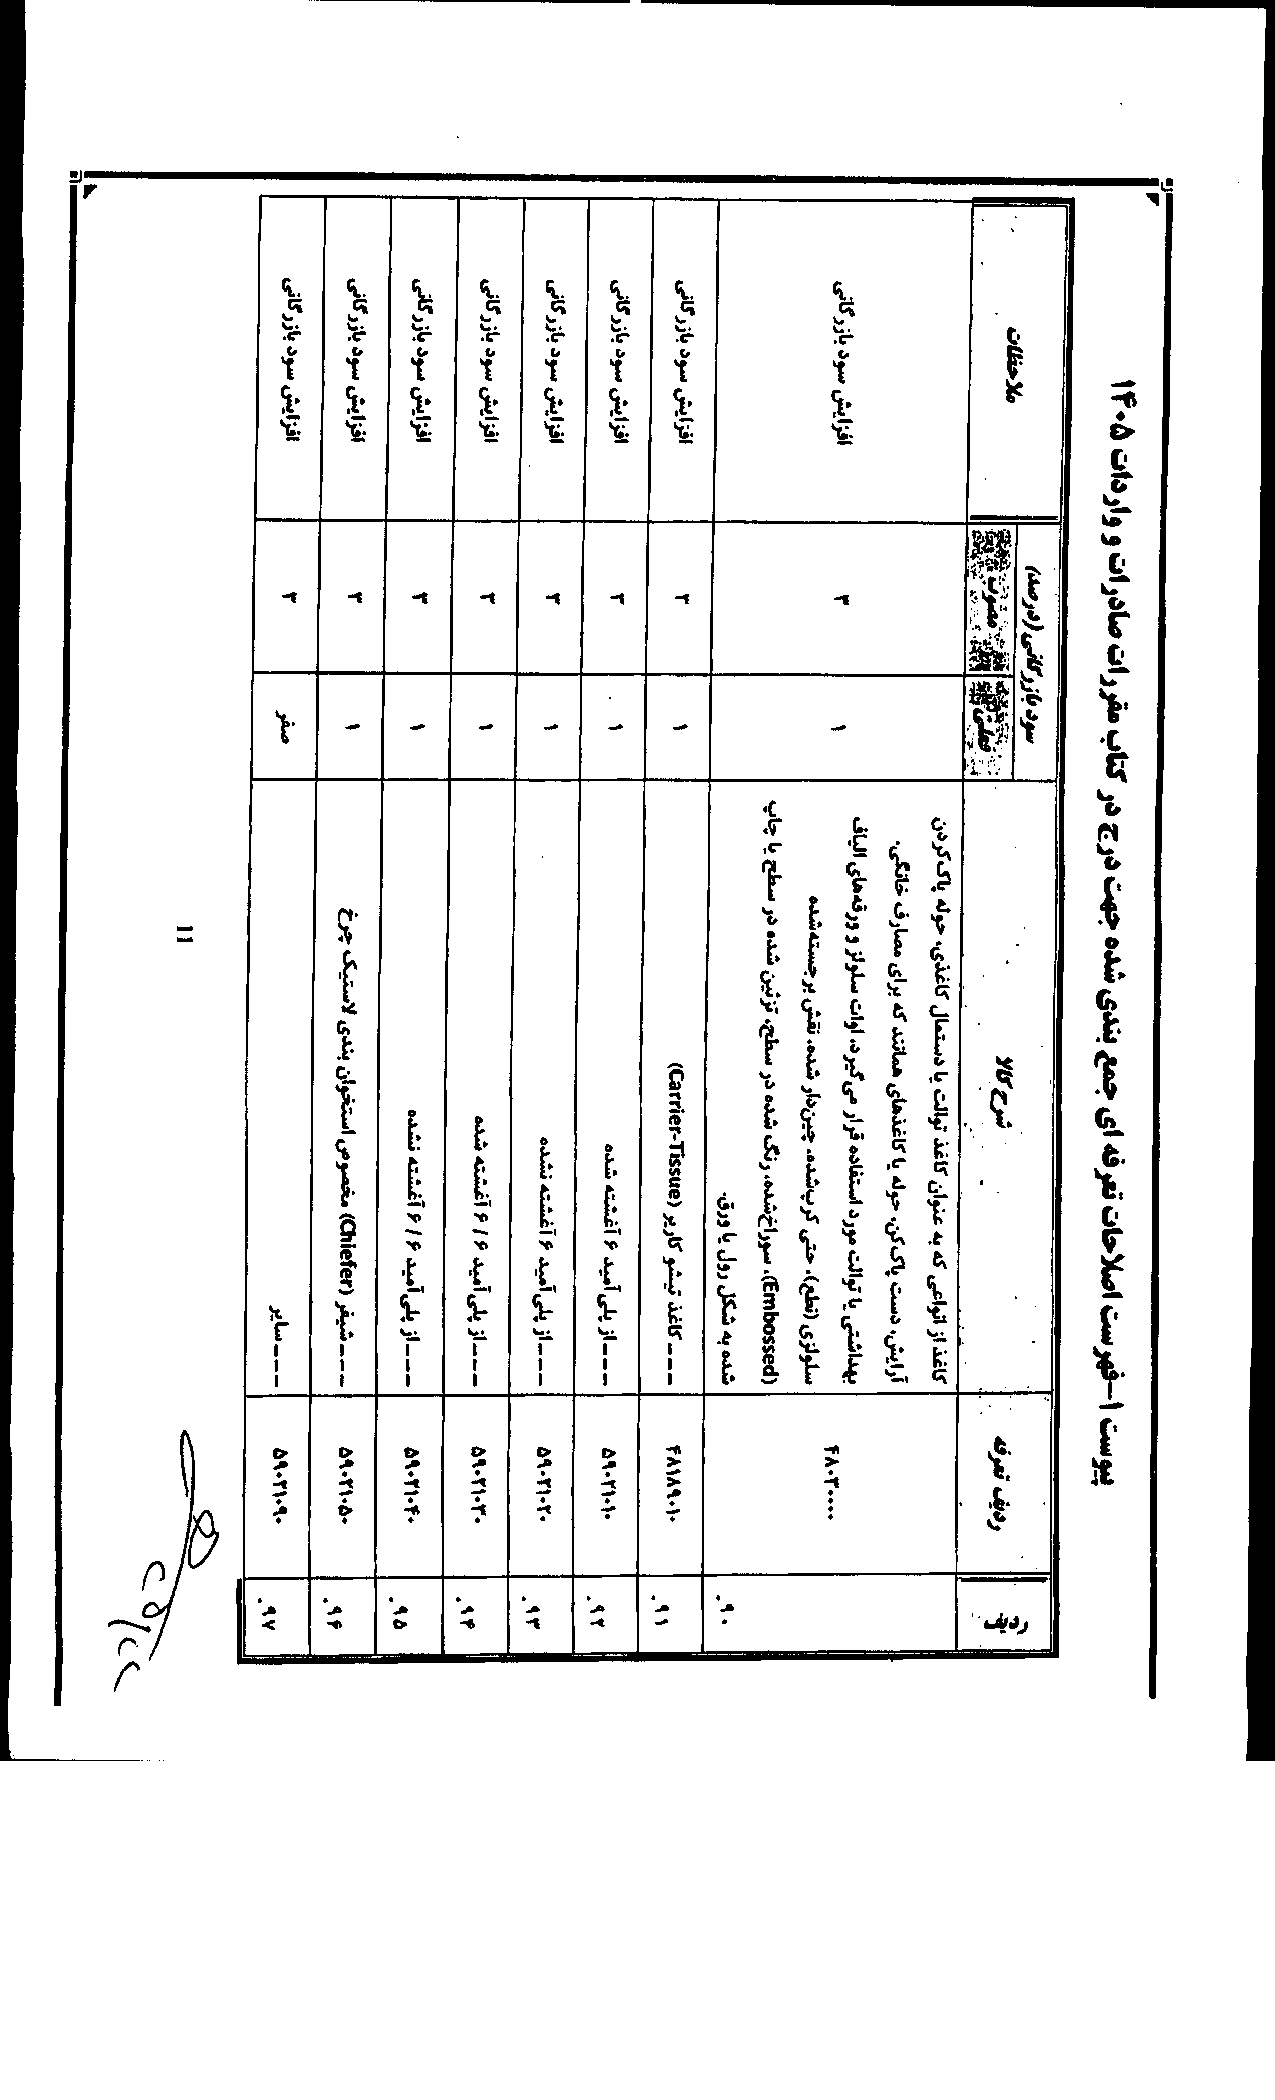 پیوست ۱-فهرست اصلاحات تعرفه ای جمع بندی شده جهت درج در کتاب مقررات صادرات و واردات ۱۴۰۵
ردیف ردیف تعرفه شرح کالا سود بازرگانی (درصد) ملاحظات
فعلی مصوب
۹۰. ۴۸۰۳۰۰۰۰ کاغذ از انواعی که به عنوان کاغذ توالت یا دستمال کاغذی، حوله پاک‌کردن ۱ ۳ افزایش سود بازرگانی
آرایش، دست پاک‌کن، حوله یا کاغذهای همانند که برای مصارف خانگی،
بهداشتی یا توالت مورد استفاده قرار می‌گیرد، اوات سلولز و ورقه‌های الیاف
سلولزی (نطع)، حتی کرپ‌شده، چین‌دار شده، نقش برجسته‌شده
(Embossed)، سوراخ‌شده، رنگ شده در سطح، تزئین شده در سطح یا چاپ
شده به شکل رول یا ورق.
۹۱. ۴۸۱۸۹۰۱۰ ---کاغذ تیشو کاریر (Carrier-Tissue) ۱ ۳ افزایش سود بازرگانی
۹۲. ۵۹۰۲۱۰۱۰ ---از پلی آمید ۶ آغشته شده ۱ ۳ افزایش سود بازرگانی
۹۳. ۵۹۰۲۱۰۲۰ ---از پلی آمید ۶ آغشته نشده ۱ ۳ افزایش سود بازرگانی
۹۴. ۵۹۰۲۱۰۳۰ ---از پلی آمید ۶ / ۶ آغشته شده ۱ ۳ افزایش سود بازرگانی
۹۵. ۵۹۰۲۱۰۴۰ ---از پلی آمید ۶ / ۶ آغشته نشده ۱ ۳ افزایش سود بازرگانی
۹۶. ۵۹۰۲۱۰۵۰ ---شیفر (Chiefer) مخصوص استخوان بندی لاستیک چرخ ۱ ۳ افزایش سود بازرگانی
۹۷. ۵۹۰۲۱۰۹۰ ---سایر صفر ۳ افزایش سود بازرگانی
11